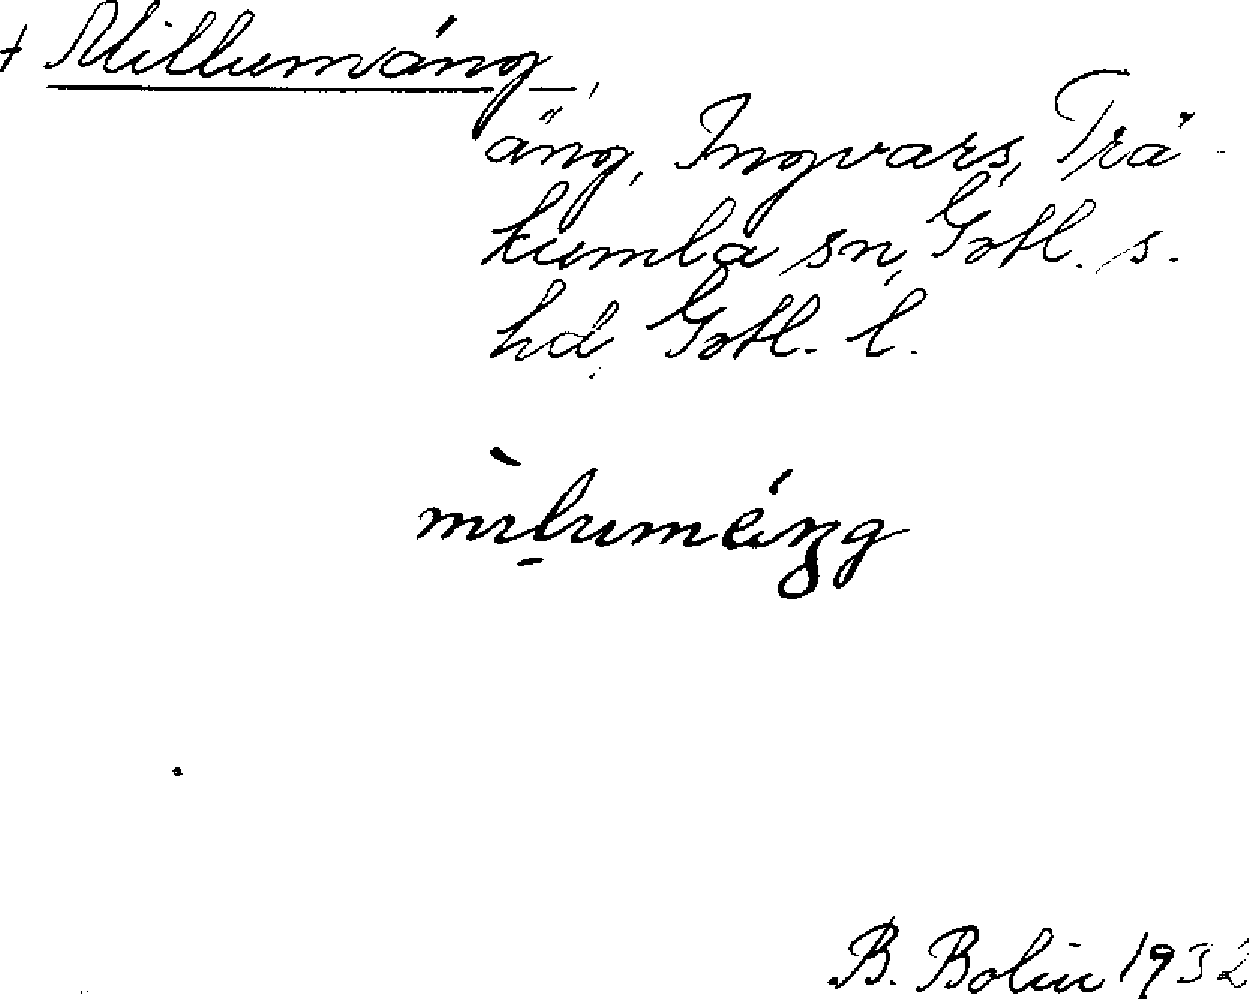 + Millumáng,
äng, Ingvars, Trä-
kumla sn, Gotl. s.
hd, Gotl. l.
B. Bolin 1932